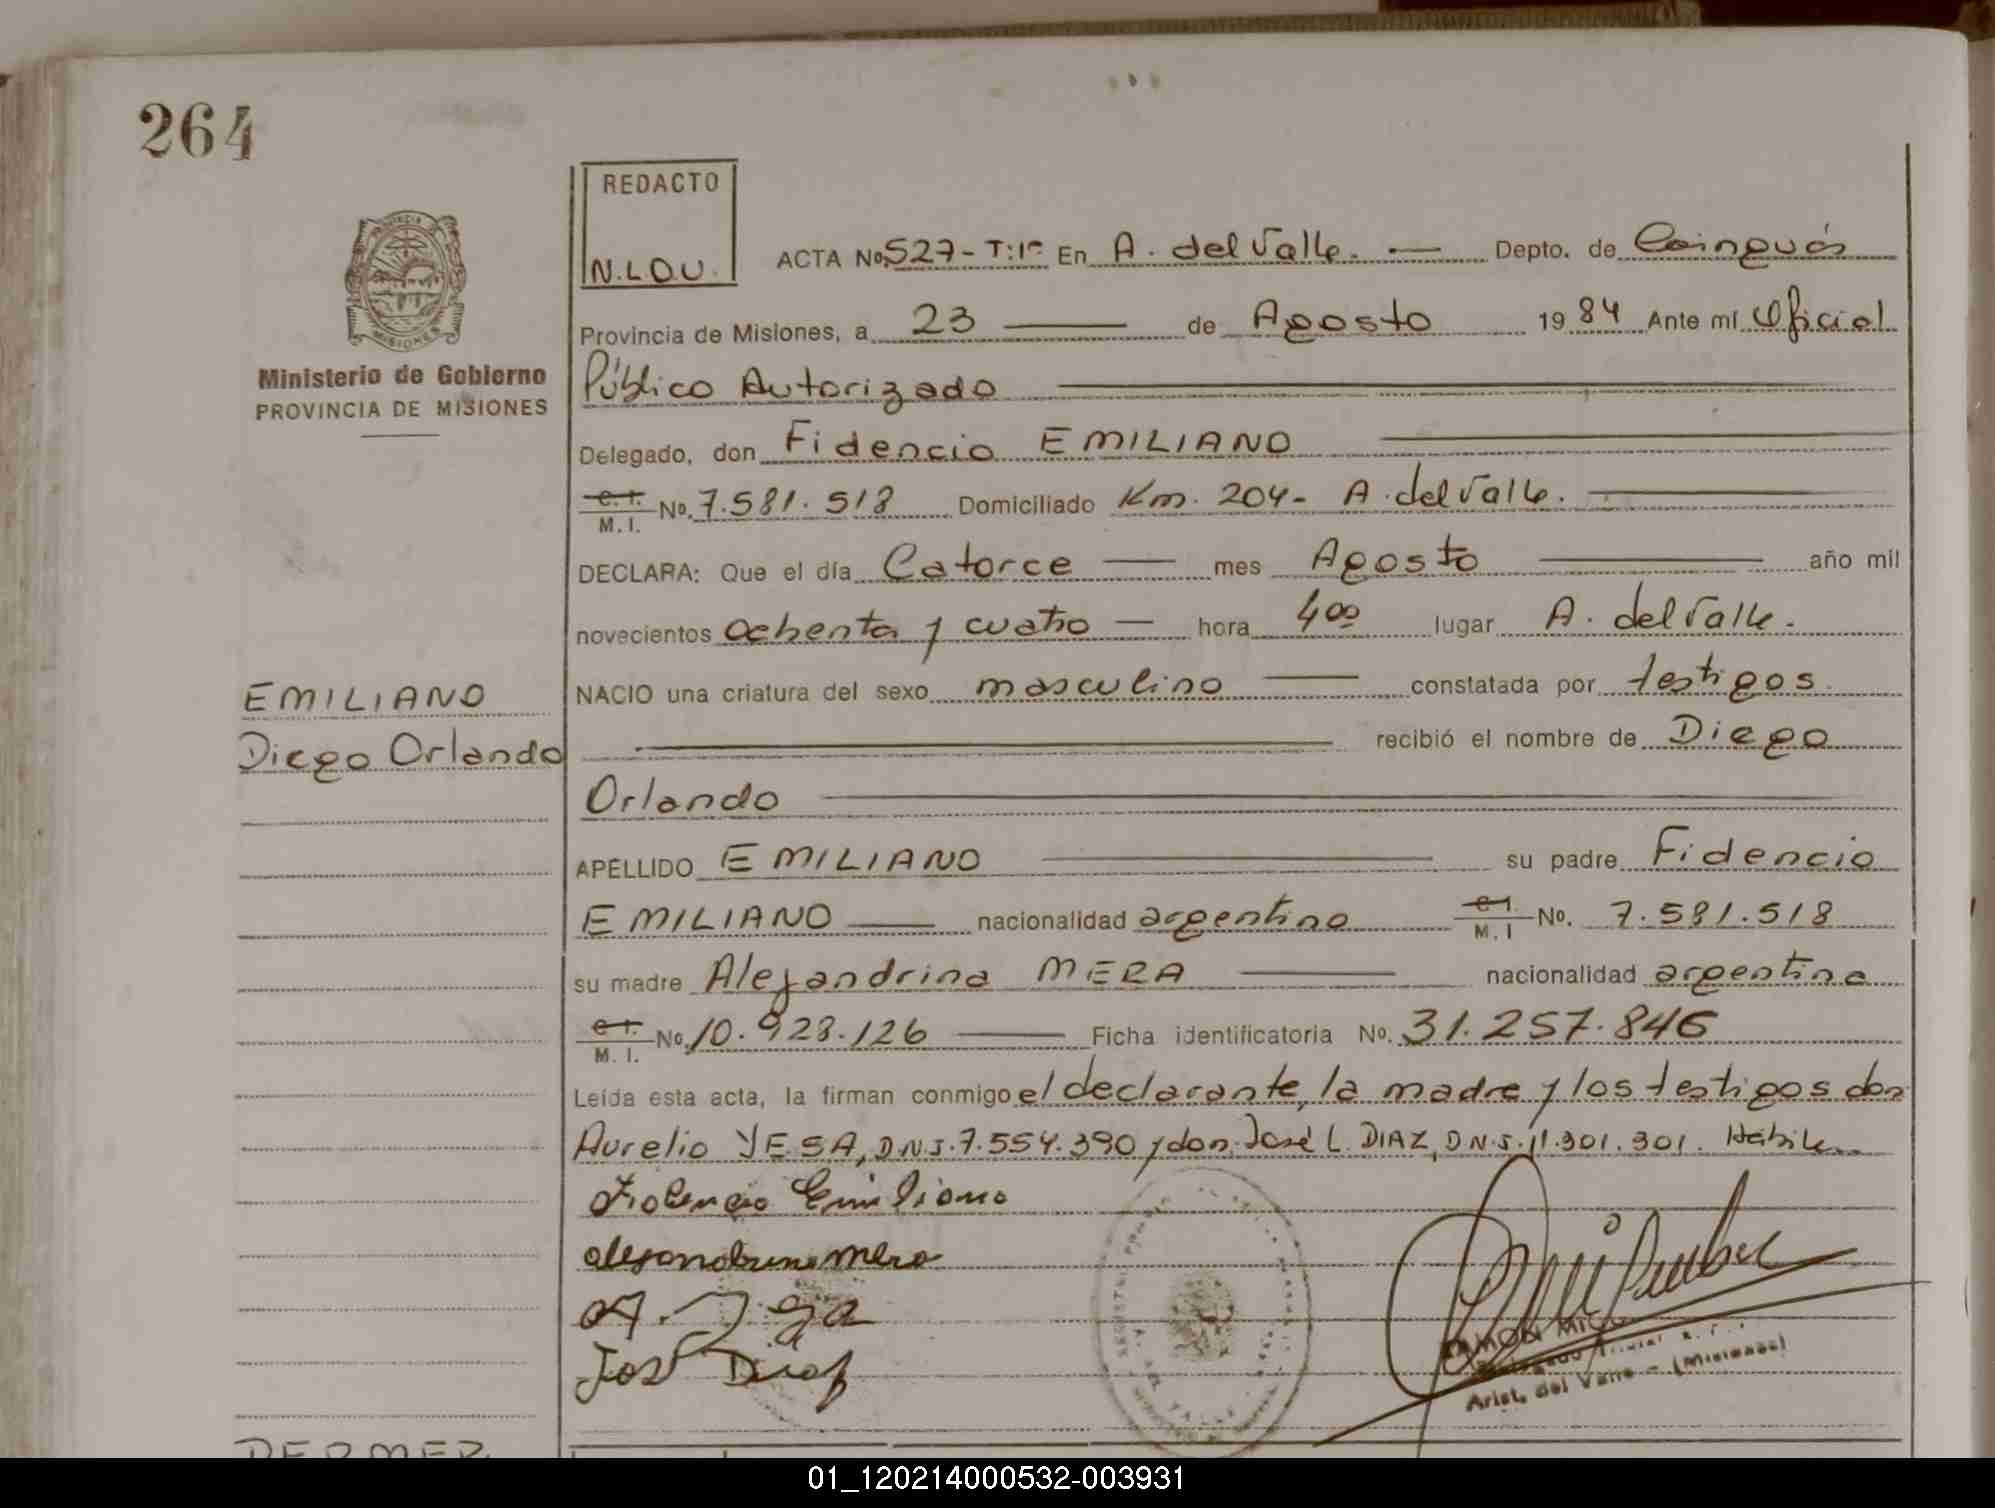 264
REDACTO
N.L.O.U.
PROVINCIA
MISIONES
Ministerio de Gobierno
PROVINCIA DE MISIONES
ACTA No. 527-T:1º En A. del Valle. — Depto. de Cainguás
Provincia de Misiones, a 23 — de Agosto 1984 Ante mí Oficial
Público Autorizado
Delegado, don Fidencio EMILIANO
C. I. M. I. No. 7.581.518 Domiciliado Km. 204- A. del Valle.
DECLARA: Que el día Catorce — mes Agosto — año mil
novecientos ochenta y cuatro — hora 4 00 lugar A. del Valle.
EMILIANO
Diego Orlando
NACIO una criatura del sexo masculino — constatada por testigos.
— recibió el nombre de Diego
Orlando
APELLIDO EMILIANO — su padre Fidencio
EMILIANO — nacionalidad argentino C. I. M. I No. 7.581.518
su madre Alejandrina MERA — nacionalidad argentina
C. I. M. I. No. 10.928.126 — Ficha identificatoria No. 31.257.846
Leída esta acta, la firman conmigo el declarante, la madre y los testigos don
Aurelio YESA, D.N.I. 7.554.390 y don José L. DIAZ, D.N.I. 11.301.301. Hábiles
Fidencio Emiliano
alejandrina mera
José Diaz
RAMON
Arist. del Valle - (Misiones)
01_120214000532-003931